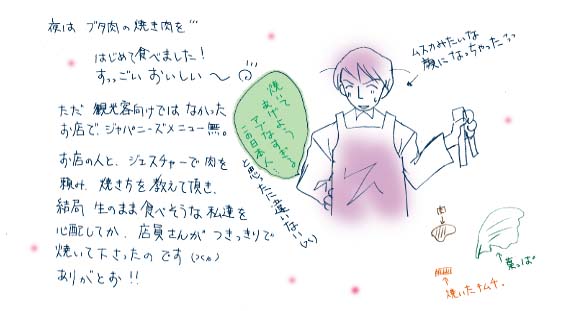 夜は ブタ肉の焼き肉を…
はじめて食べました!
すっっごい おいしい〜
ただ 観光客向けでは なかった
お店で、ジャパニーズメニュー無。
お店の人と、ジェスチャーで肉を
頼み、焼き方を教えて頂き、
結局 生のまま食べそうな私達を
心配してか、店員さんが つきっきりで
焼いて下さったのです
ありがとお!!
焼いて
あげよう
アブなすぎる。
この日本人…
と思ったに違いない(^^)
ムスカみたいな
顔になっちゃった
肉
葉っぱ
焼いたキムチ。